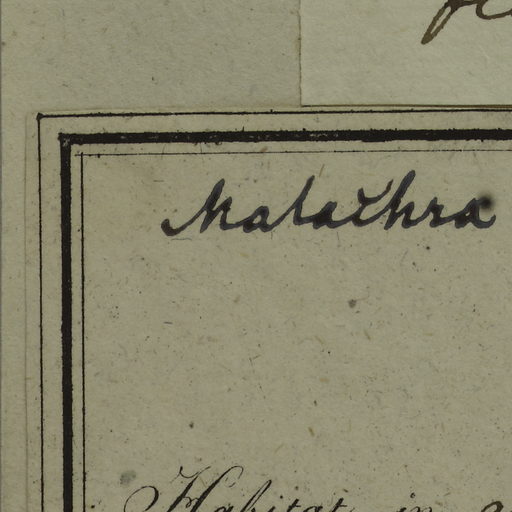 Malachra
Habitat in